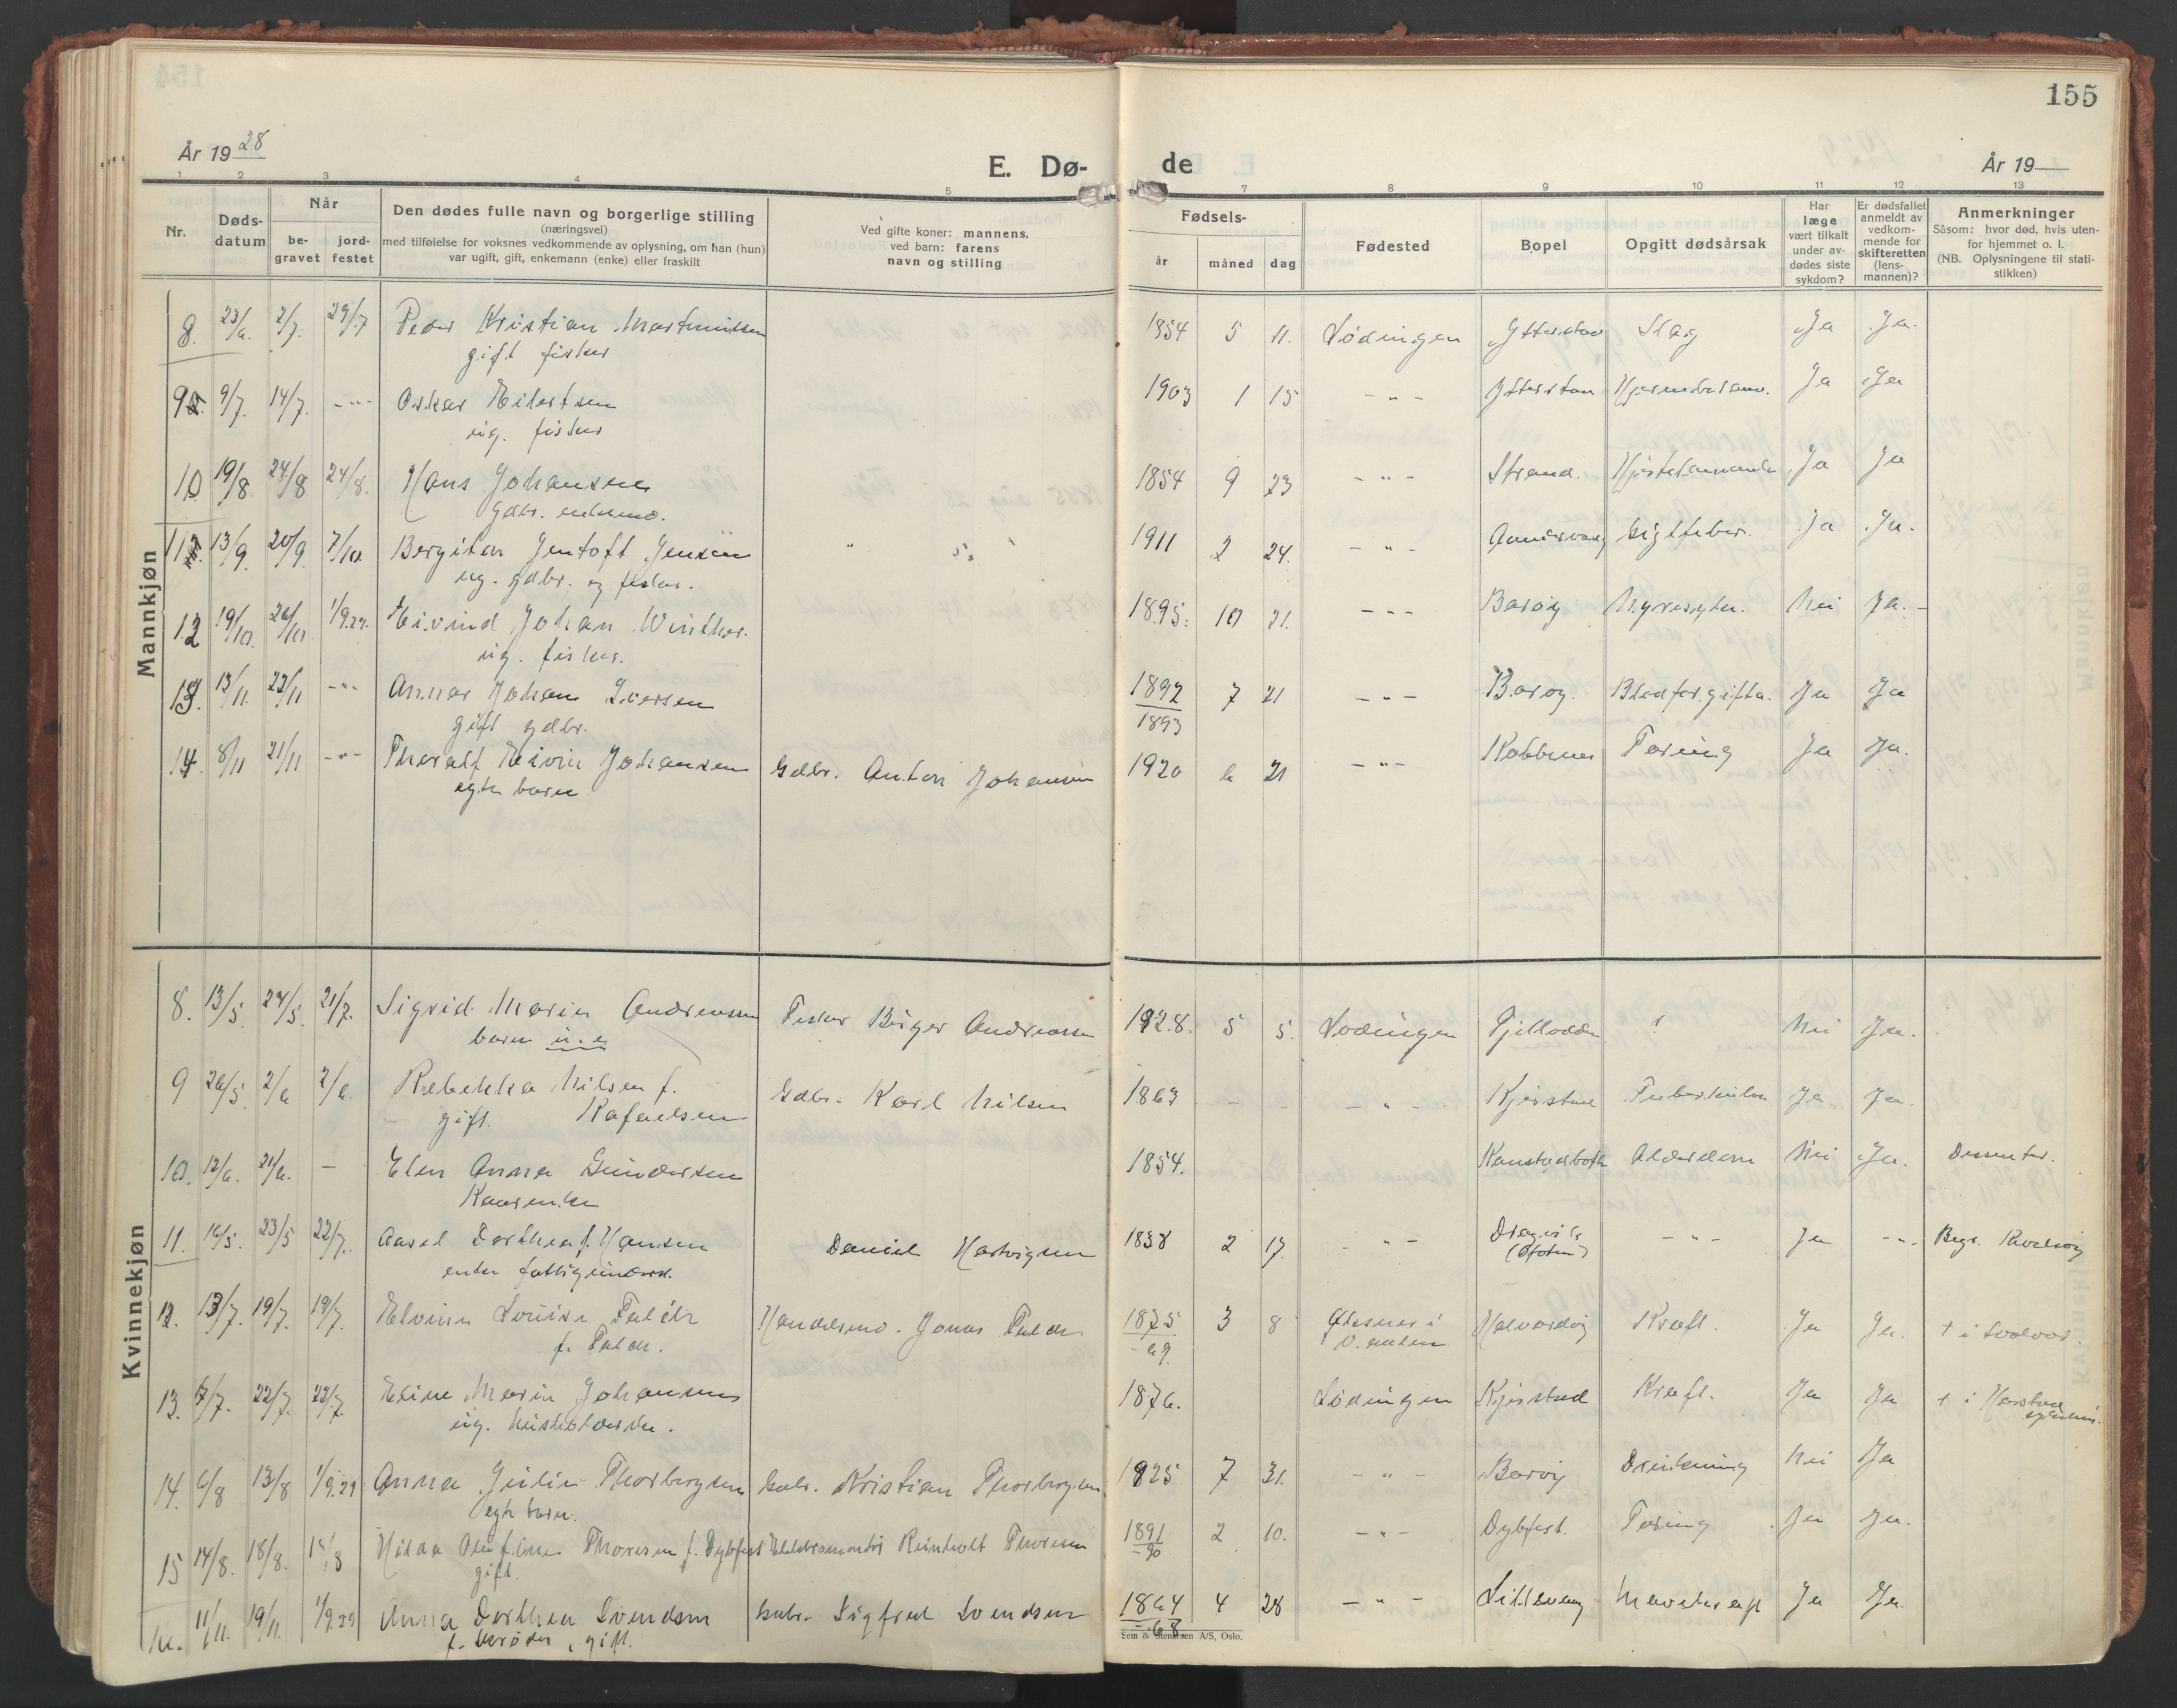 155
År 19 28
E. Dø-
de
År 19
1 2 3 4 5 7 8 9 10 11 12 13
Nr.
Døds-
datum
Når
be-
gravet
jord-
festet
Den dødes fulle navn og borgerlige stilling
(næringsvei)
med tilføielse for voksnes vedkommende av oplysning, om han (hun)
var ugift, gift, enkemann (enke) eller fraskilt
Ved gifte koner: mannens,
ved barn: farens
navn og stilling
Fødsels-
år måned dag
Fødested
Bopel
Opgitt dødsårsak
Har
læge
vært tilkalt
under av-
dødes siste
sykdom?
Er dødsfallet
anmeldt av
vedkom-
mende for
skifteretten
(lens-
mannen)?
Anmerkninger
Såsom: hvor død, hvis uten-
for hjemmet o. l.
(NB. Oplysningene til stati-
stikken)
Mannkjøn
8. 23/6. 2/7. 29/7 Peder Kristian Martinussen 1854 5 11. Lødingen Ytterstad Slag Ja Ja.
gift fisker
9. 9/7. 14/7. -"- Oskar Eilertsen 1903 1 15 -"- Ytterstad Ja Ja
ug. fisker
10 19/8 24/8 24/8. Hans Johansen 1854 9 23 -"- Strand. Ja Ja
Gdbr. enkemd.
11 13/9. 20/9. 7/10. Bergiton Jentoft Jensen 1911 2 24. -"- Ja Ja.
ug. gdbr. og fisker.
12 19/10. 26/10. 1/9.29. Eivind Johan Winther. 1895. 10 21. -"- Barøy Nyresyke. Nei Ja.
ug. fisker.
13. 13/11. 22/11 -"- Annar Johan Iversen 1892 7 21 -"- Barøy. Blodforgiftn. Ja Ja
gift gdbr. 1893
14. 8/11 21/11 -"- Thoralf Eivin Johansen Gdbr. Anton Johansen 1920 6 21 -"- Kobbenes Tæring Ja Ja.
egte barn
Kvinnekjøn
8. 13/5. 24/5. 21/7. Sigrid Marie Andreassen Fisker Birger Andreassen 1928. 5 5. Lødingen Fjelldalen ? Nei Ja.
barn u. e
9 26/5. 2/6 2/6. Rebekka Nilsen f. Gdbr. Karl Nilsen 1863 - - -"- Kjerstad Tuberkulose Ja Ja.
gift. Rafaelsen
10. 12/6. 21/6. - Elen Anna Gundersen 1854. Kanstadbotn Alderdom Nei Ja. Dissenter.
Kaarenke
11. 16/5. 23/5 22/7. Aasel Dorthea f. Hansen Daniel Hartvigsen 1838 2 17. -"- -"- Ja -"-
enke fattigunderst. (Ofoten)
12. 13/7. 19/7. 19/7. Elvine Lovise Falch Handelsmd. Jonas Falch 1875 3 8 Ja Ja. + i Svolvær.
f. Falch. -69.
13. 7/7. 22/7. 22/7. Eline Marie Johansen 1876. Lødingen Kjerstad Kræft. Ja Ja + i Harstad
ug. husholderske. sykehus.
14. 6/8 13/8 1/9.29 Anna Julie Thorbergsen Gdbr. Kristian Thorbergsen 1925 7 31. -"- Barøy Drukning Nei Ja
egte barn.
15 14/8. 18/8. 18/8 Hilda Olufine Thoresen f. Dybfest Reinholt Thoresen 1891 2 10. -"- Dybfest. Tæring Ja Ja.
gift. -90
16. 11/11. 19/11. 1/9.29 Anna Dorthea Svendsen Gdbr. Sigfred Svendsen 1864 4 28 -"- Mavekræft Ja Ja.
gift. -68.
Sem & Stenersen A/S, Oslo.